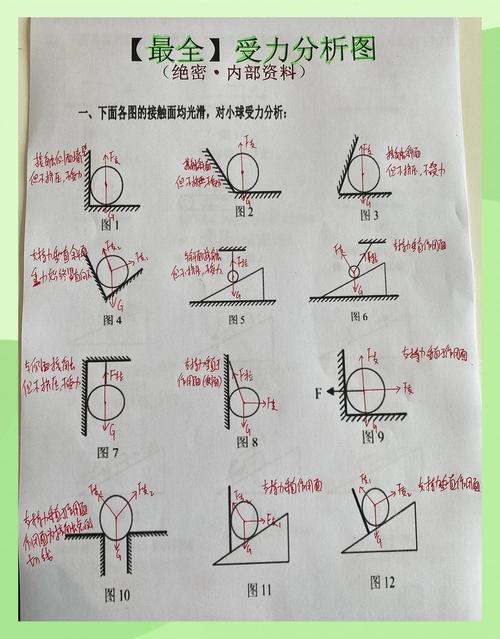 【最全】受力分析图
（绝密·内部资料）
一、下面各图的接触面均光滑，对小球受力分析：
接触侧面墙壁
但不挤压，不受力
F支
G
图 1
接触斜面
但不挤压不受力
F支
G
图 2
接触斜面
但不挤压，不受力
F支
G
图 3
支持力垂直斜面
重力始终竖直向下
F支₁
F支₂
G
图 4
与斜面接触
但不挤压，不受力
G
图 5
支持力垂直作用面
F支
G
图 6
与侧面接触
但不挤压，不受力
F拉
G
图 7
支持力垂直于
作用面
F拉
F支
G
图 8
支持力垂直作用面
F支
F
F支
G
图 9
支持力垂直作用面
作用面为接触点的
切线
F支₁
F支₂
G
图 10
支持力垂直作用面
F支₂
F支₁
G
图 11
支持力垂直作用面
F支₁
F支₂
G
图 12